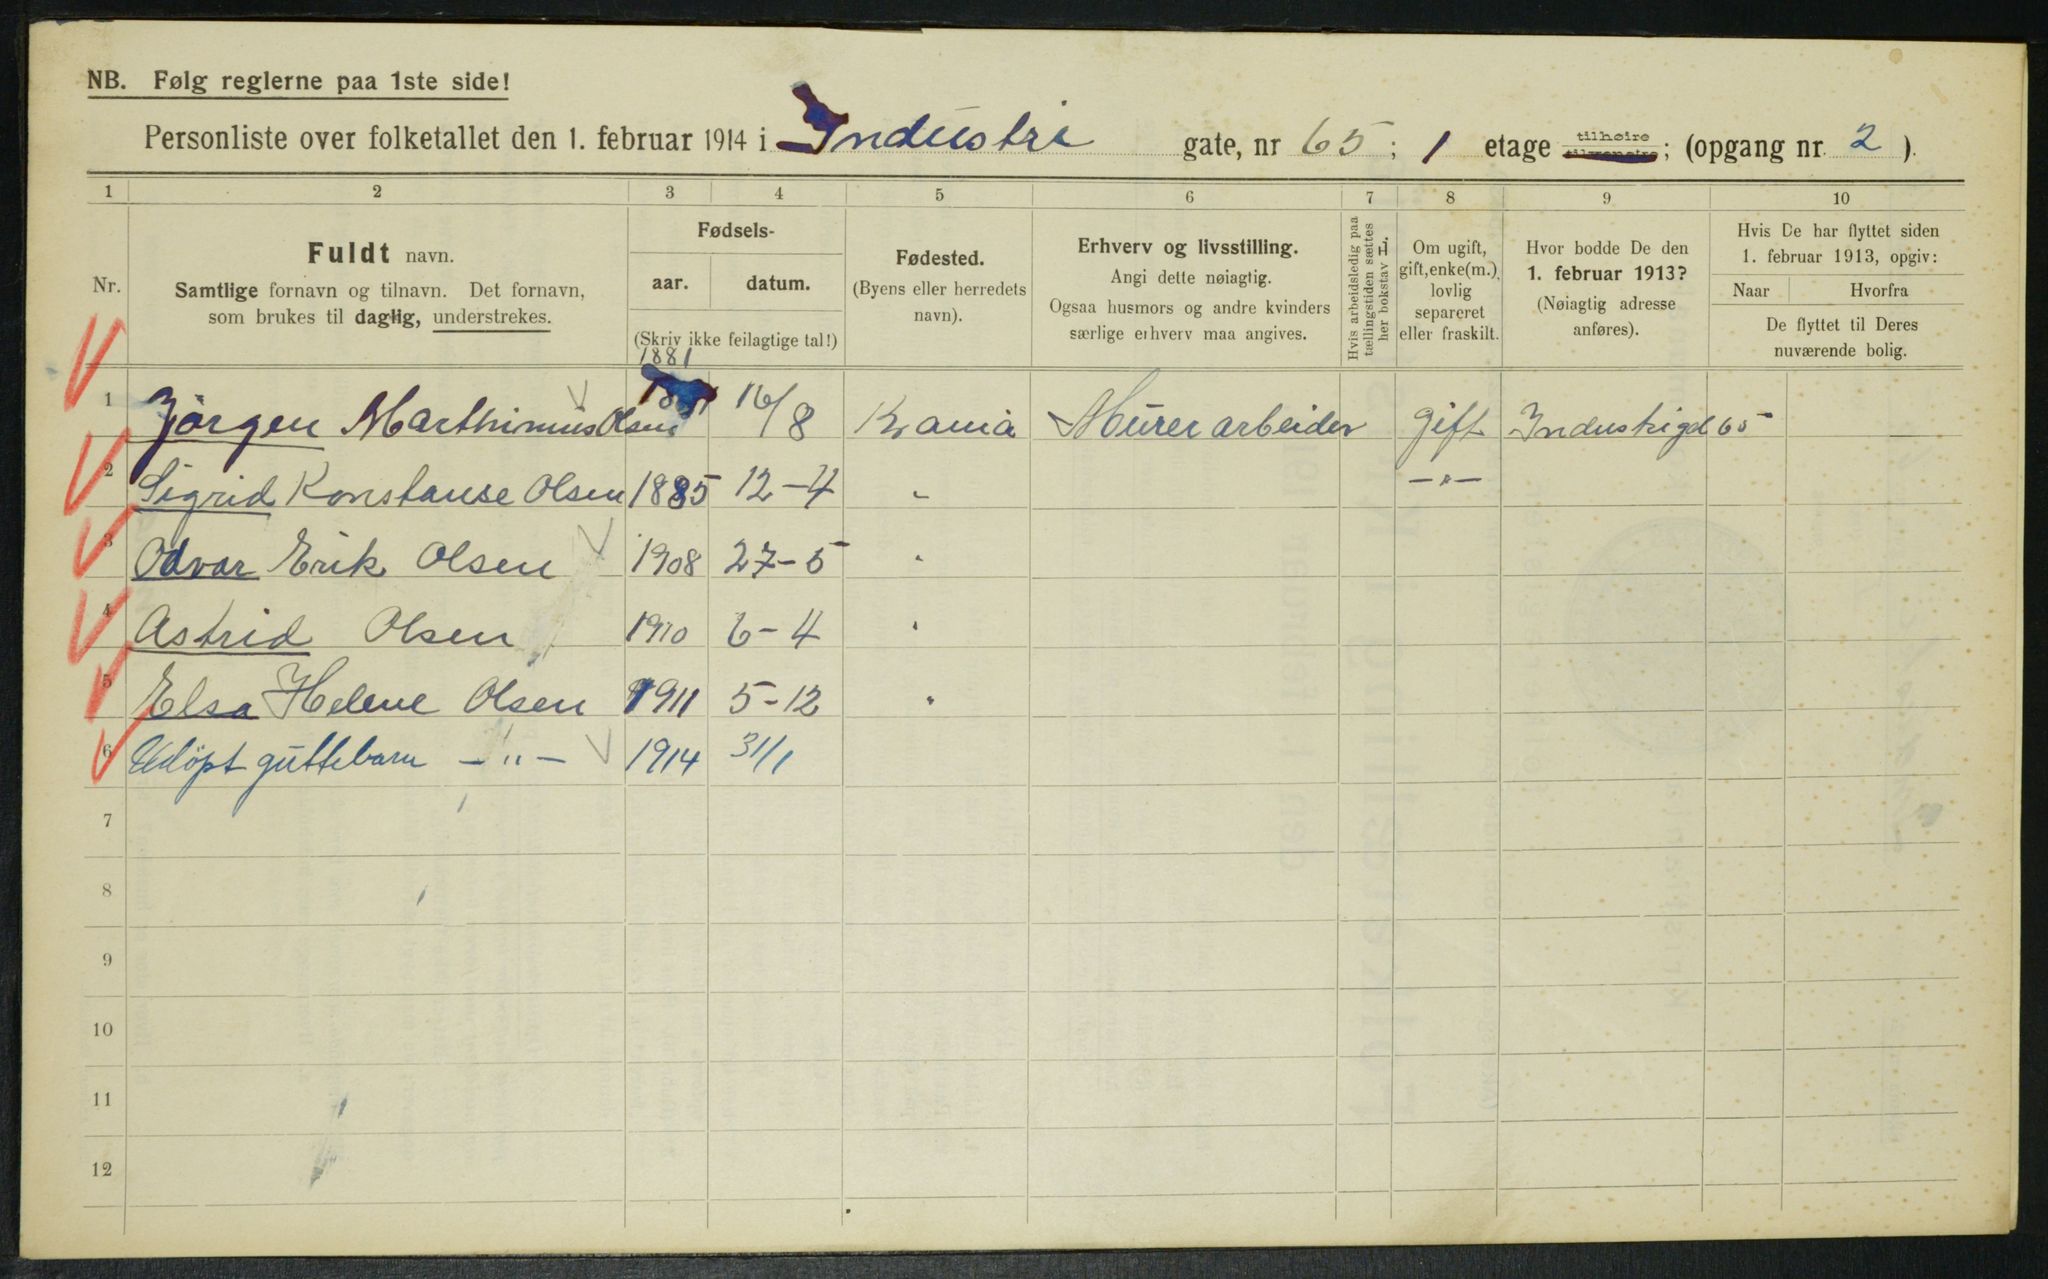 NB. Følg reglerne paa 1ste side!
Personliste over folketallet den 1. februar 1914 i Industri gate, nr 65; 1 etage tilhøire tilvenstre; (opgang nr. 2).
1 2 3 4 5 6 7 8 9 10
Nr.
Fuldt navn.
Samtlige fornavn og tilnavn. Det fornavn,
som brukes til daglig, understrekes.
Fødsels-
aar. datum.
(Skriv ikke feilagtige tal!)
Fødested.
(Byens eller herredets
navn).
Erhverv og livsstilling.
Angi dette nøiagtig.
Ogsaa husmors og andre kvinders
særlige erhverv maa angives.
Hvis arbeidsledig paa
tællingstiden sættes
her bokstav
Om ugift,
gift, enke(m.),
lovlig
separeret
eller fraskilt.
Hvor bodde De den
1. februar 1913?
(Nøiagtig adresse
anføres).
Hvis De har flyttet siden
1. februar 1913, opgiv:
Naar Hvorfra
De flyttet til Deres
nuværende bolig.
1881
1 Jørgen Marthinius Olsen 16/8 Krania Murerarbeider gift Industrigd 65
2 Sigrid Konstanse Olsen 1885 12-4 " -"-
3 Odvar Erik Olsen 1908 27-5 "
4 Astrid Olsen 1910 6-4 "
5 Elsa Helene Olsen 1911 5-12 "
6 Udöpt guttebarn -"- 1914 31/1
7
8
9
10
11
12